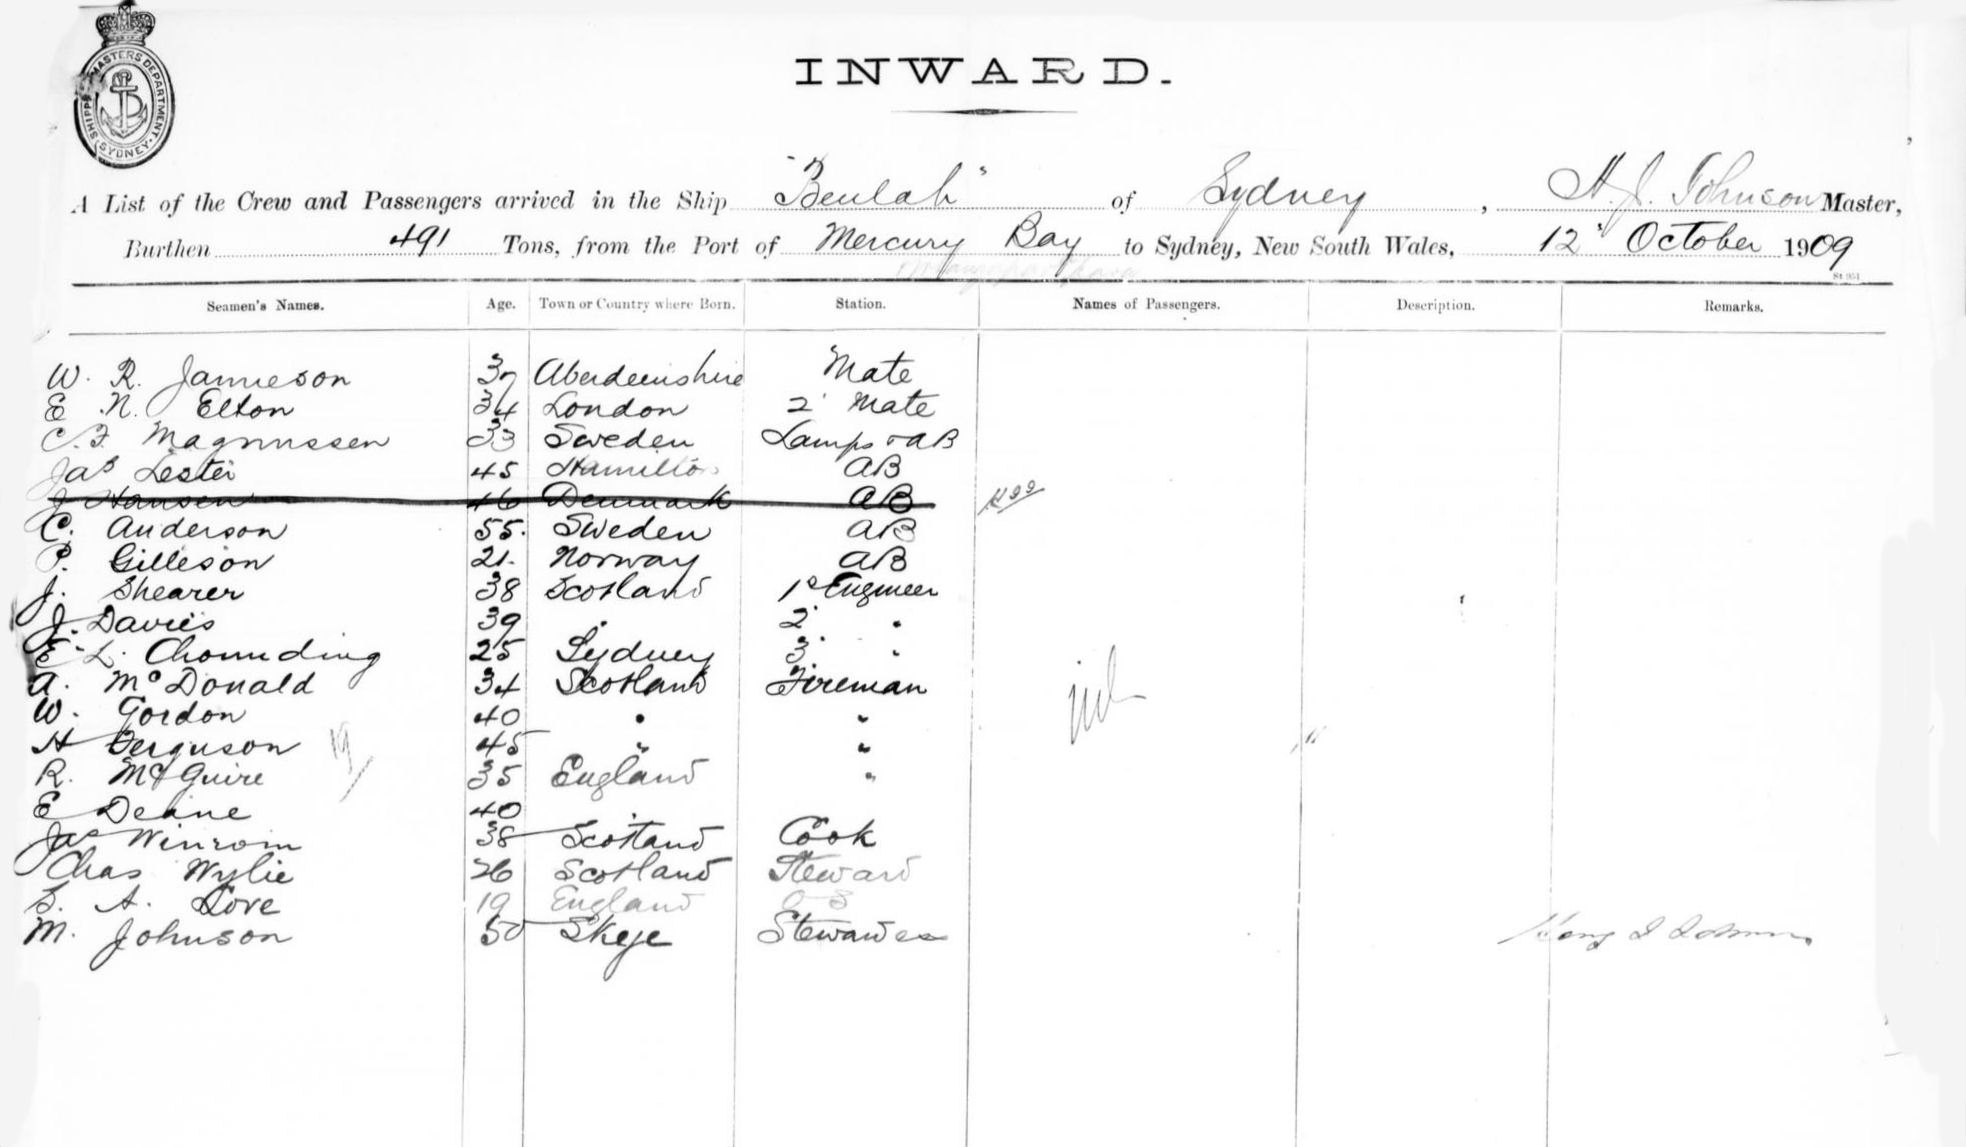 SHIPPING MASTERS DEPARTMENT. SYDNEY.
INWARD.
A List of the Crew and Passengers arrived in the Ship "Beulah" of Sydney, H. J. Johnson Master,
Burthen 491 Tons, from the Port of Mercury Bay to Sydney, New South Wales, 12 October 1909
St 951
Seamen's Names. Age. Town or Country where Born. Station. Names of Passengers. Description. Remarks.
W. R. Jamieson 37 Aberdeenshire Mate
E N. Elton 34 London 2 Mate
C. F. Magnussen 33 Sweden Lamps & AB
Jas Lester 45 Hamilton AB
J Hansen 46 Denmark AB
C. Anderson 55. Sweden AB
P. Gilleson 21. Norway AB
J. Shearer 38 Scotland 1st Engineer
J. Davies 39 " 2 "
E. L. 25 Sydney 3 "
A. McDonald 34 Scotland Fireman
W. Gordon 40 " "
H Ferguson 45 " "
19
R. McGuire 35 England "
E Deane 40 "
Jas Winrom 38 Scotland Cook
Chas Wylie 26 Scotland Steward
S. A. Love 19 England OS
M. Johnson 50 Skye Stewardess
nil